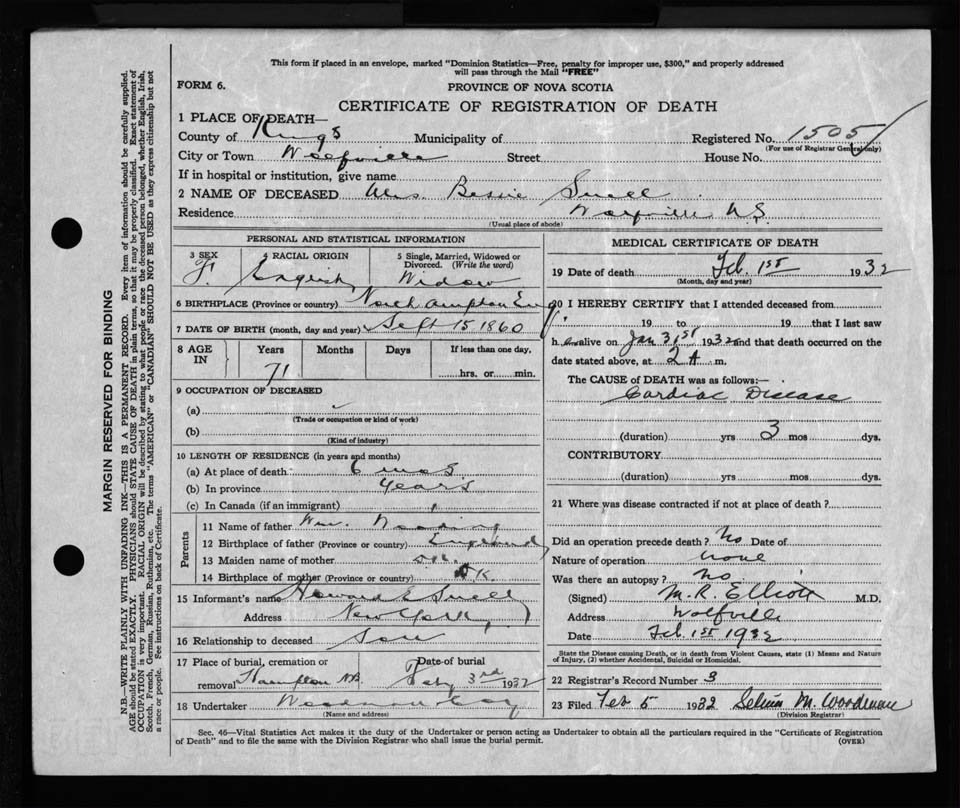 This form if placed in an envelope, marked "Dominion Statistics—Free, penalty for improper use, $300," and properly addressed
will pass through the Mail "FREE"
FORM 6.
PROVINCE OF NOVA SCOTIA
CERTIFICATE OF REGISTRATION OF DEATH
1 PLACE OF DEATH—
County of Kings Municipality of Registered No. 1505
(For use of Registrar General only)
City or Town Wolfville Street House No.
If in hospital or institution, give name
2 NAME OF DECEASED Mrs. Bessie Snell
Residence Wolfville N.S.
(Usual place of abode)
PERSONAL AND STATISTICAL INFORMATION
3 SEX 4 RACIAL ORIGIN 5 Single, Married, Widowed or
Divorced. (Write the word)
F. English Widow
6 BIRTHPLACE (Province or country) Northampton Eng
7 DATE OF BIRTH (month, day and year) Sept 15 1860
8 AGE IN Years Months Days If less than one day,
71 hrs. or min.
9 OCCUPATION OF DECEASED
(a)
(Trade or occupation or kind of work)
(b)
(Kind of industry)
10 LENGTH OF RESIDENCE (in years and months)
(a) At place of death 6 mos.
(b) In province years
(c) In Canada (if an immigrant)
Parents
11 Name of father Wm.
12 Birthplace of father (Province or country) England
13 Maiden name of mother D.K.
14 Birthplace of mother (Province or country) D.K.
15 Informant's name Howard E. Snell
Address New York
16 Relationship to deceased Son
17 Place of burial, cremation or Date of burial
removal Hampton N.B. Feby 3rd 1932
18 Undertaker Woodman
(Name and address)
MEDICAL CERTIFICATE OF DEATH
19 Date of death Feb. 1st 1932
(Month, day and year)
20 I HEREBY CERTIFY that I attended deceased from
19 to 19 that I last saw
h er alive on Jan 31st 1932 and that death occurred on the
date stated above, at 2 A m.
The CAUSE OF DEATH was as follows:—
Cardiac Disease
(duration) yrs 3 mos dys.
CONTRIBUTORY
(duration) yrs mos dys.
21 Where was disease contracted if not at place of death?
Did an operation precede death? No Date of
Nature of operation none
Was there an autopsy? no
(Signed) M. R. Elliott M.D.
Address Wolfville
Date Feb. 1st 1932
State the Disease causing Death, or in death from Violent Causes, state (1) Means and Nature
of Injury, (2) whether Accidental, Suicidal or Homicidal.
22 Registrar's Record Number 3
23 Filed Feb 5 1932 M. Woodman
(Division Registrar)
Sec. 46—Vital Statistics Act makes it the duty of the Undertaker or person acting as Undertaker to obtain all the particulars required in the "Certificate of Registration
of Death" and to file the same with the Division Registrar who shall issue the burial permit. (OVER)
MARGIN RESERVED FOR BINDING
N.B.—WRITE PLAINLY WITH UNFADING INK—THIS IS A PERMANENT RECORD. Every item of information should be carefully supplied.
AGE should be stated EXACTLY. PHYSICIANS should STATE CAUSE OF DEATH in plain terms, so that it may be properly classified. Exact statement of
OCCUPATION is very important. RACIAL ORIGIN will be described by stating to what people or race the deceased person belonged, whether English, Irish,
Scotch, French, German, Russian, Ruthenian, etc. The terms "AMERICAN" or "CANADIAN" SHOULD NOT BE USED as they express citizenship but not
a race or people. See instructions on back of Certificate.